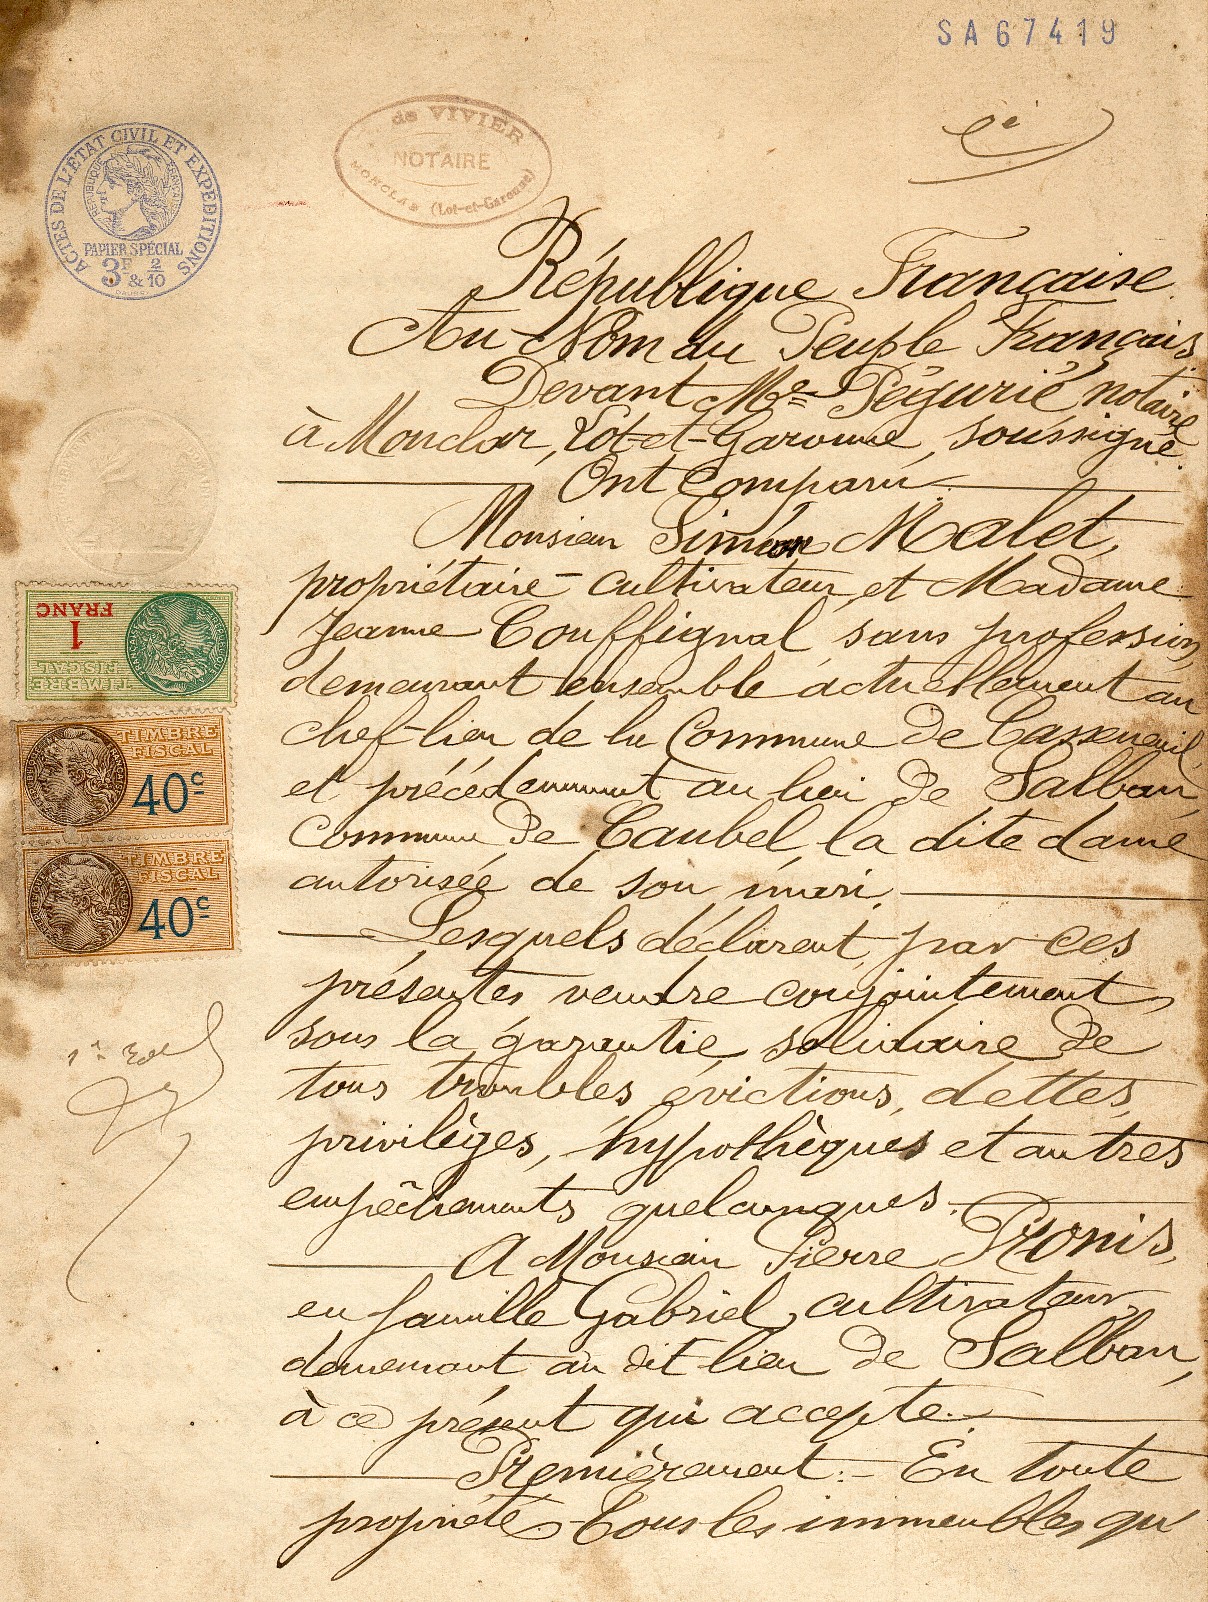 SA67419
ACTES DE L'ÉTAT CIVIL ET EXPÉDITIONS
RÉPUBLIQUE FRANÇAISE
PAPIER SPÉCIAL
3F & 2/10
de VIVIER
NOTAIRE
MONCLAR (Lot-et-Garonne)
République Française
Au Nom du Peuple Français
Devant Me Pégurié notaire
à Monclar, Lot-et-Garonne, soussigné
Ont Comparu
Monsieur Siméon Malet,
propriétaire-cultivateur, et Madame
Jeanne Couffignal, sans profession,
demeurant ensemble actuellement au
chef-lieu de la Commune de Casseneuil,
et précédemment au lieu de Salban,
Commune de Caubel, la dite dame
autorisée de son mari.
Lesquels déclarent, par ces
présentes vendre conjointement,
sous la garantie solidaire de
tous troubles, évictions, dettes,
privilèges, hypothèques et autres
empêchements quelconques.
A Monsieur Pierre Pronis,
en famille Gabriel, cultivateur,
demeurant au dit lieu de Salban,
à ce présent qui accepte.
Premièrement:- En toute
propriété. Tous les immeubles qu'
1 FRANC
TIMBRE FISCAL
TIMBRE FISCAL
40c
TIMBRE FISCAL
40c